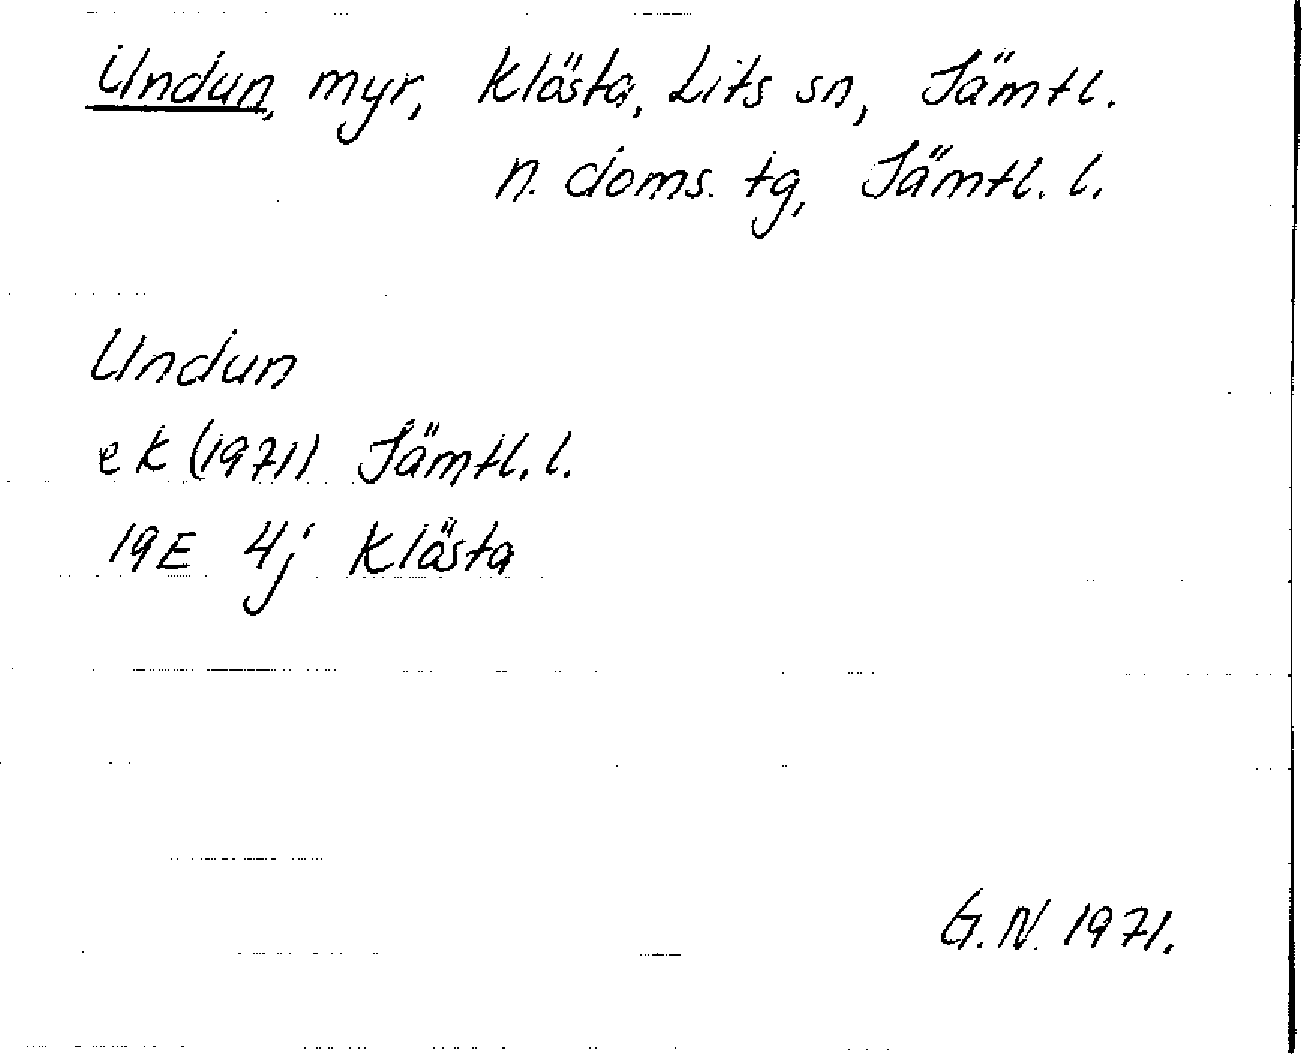 Undun, myr, Klösta, Lits sn, Jämtl.
n. doms. tg, Jämtl. l.
Undun
ek (1971) Jämtl. l.
19E 4j Klösta
G. N. 1971.